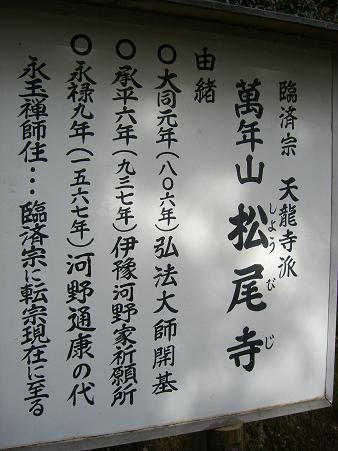 臨済宗 天龍寺派
萬年山 松尾寺
しょうびじ
由緒
〇大同元年(八〇六年)弘法大師開基
〇承平六年(九三七年)伊豫河野家祈願所
〇永禄九年(一五六七年)河野通康の代
永玉禅師住…臨済宗に転宗現在に至る